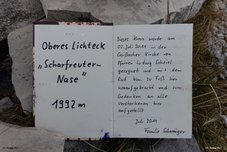 Oberes Lichteck
"Scharfreuter-
Nase"
1992m
Dieses Kreuz wurde am
02. Juli 2011 in der
Kirche von
Pfarrer Ludwig
gesegnet und mit dem
Rad bzw. zu Fuß hier
heraufgebracht und zum
Gedenken an alle
Verstorbenen hier
aufgestellt
Juli 2011
Familie